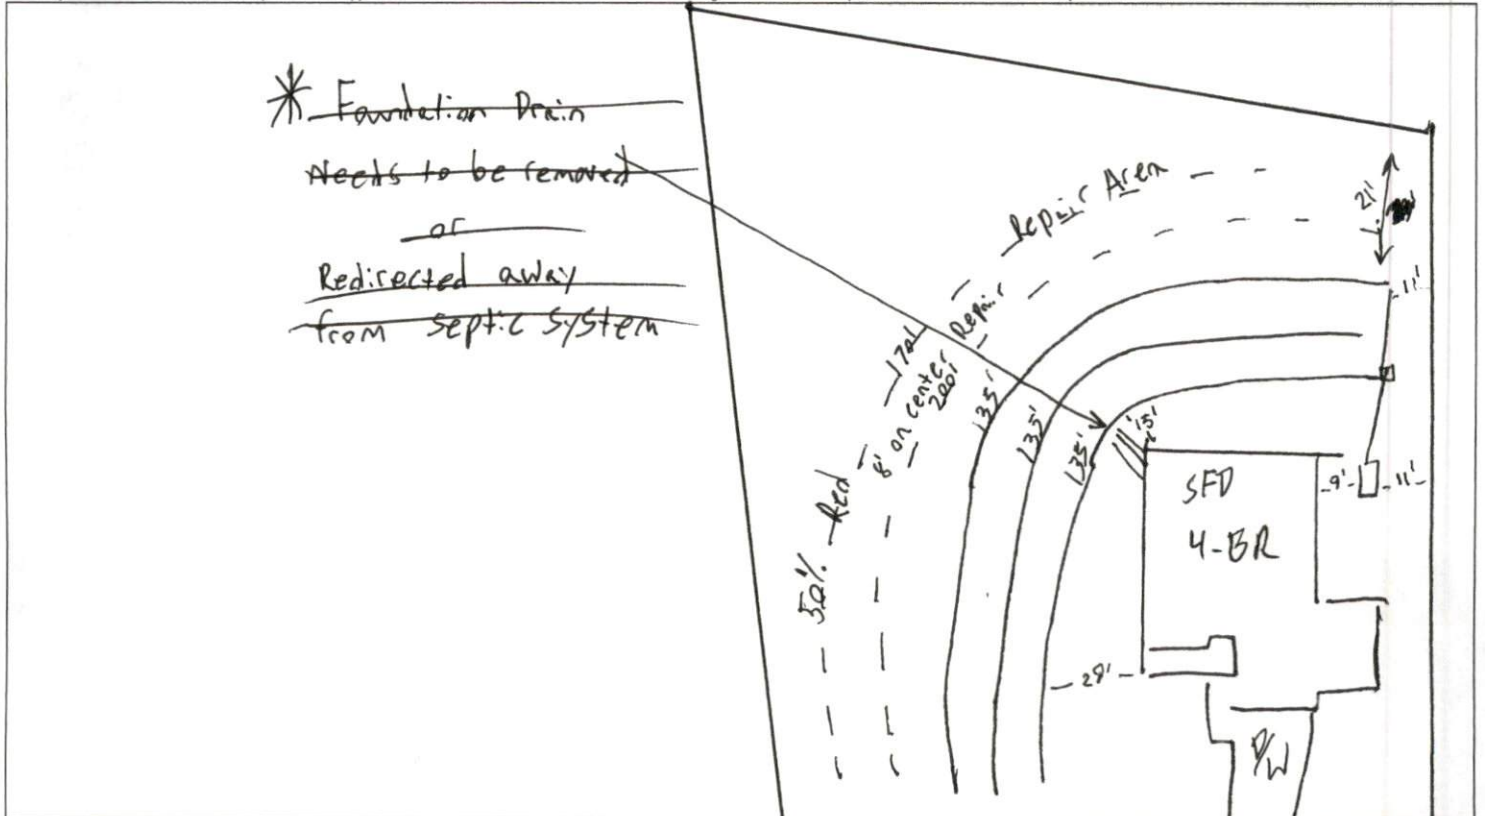 * Foundation Drain
Needs to be removed
or
Redirected away
from Septic System
Repair Area
21'
Repair
11'
170'
8' on center
200'
135'
135'
135'
15'
SFD
4-BR
9'
11'
50% Red
28'
D/W